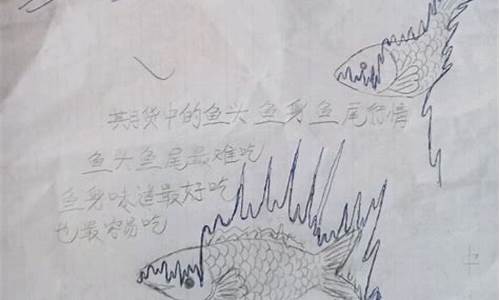 其期货中的鱼头鱼身鱼尾行情
鱼头鱼尾最难吃
鱼身味道最好吃
也最容易吃